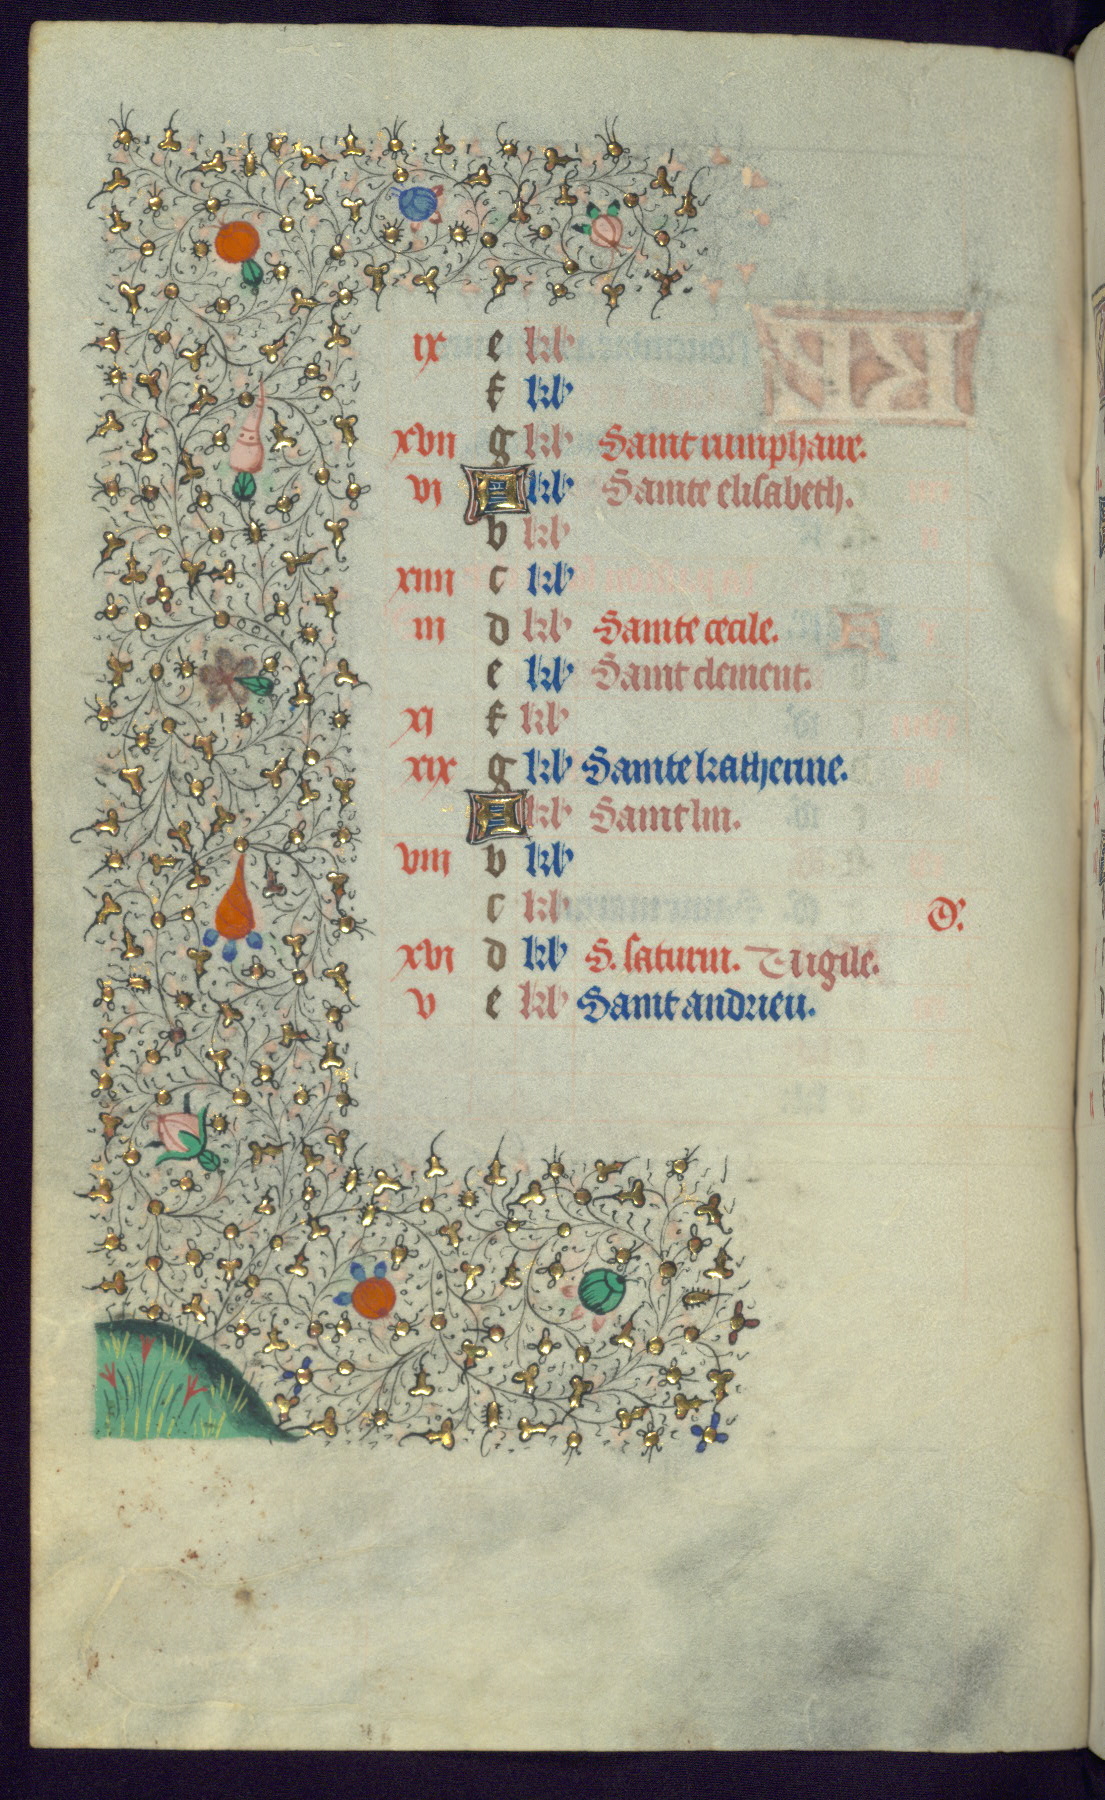 ix e kl
f kl
xvii g kl Saint
vi A kl Sainte elisabeth.
b kl
xiiii c kl
iii d kl Sainte cecile.
e kl Saint clement.
xi f kl
xix g kl Sainte katherine.
A kl Saint lin.
viii b kl
c kl D'.
xvi d kl S. saturin. Vigile.
v e kl Saint andrieu.